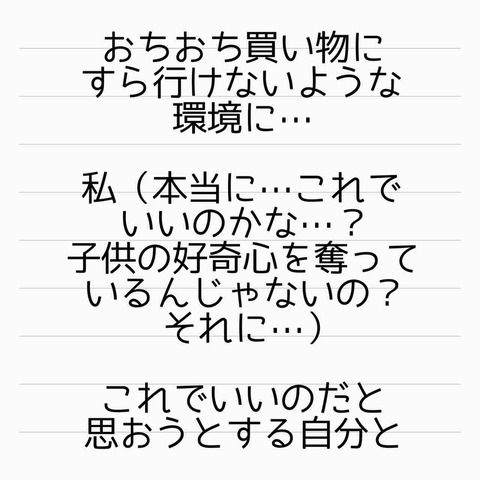 おちおち買い物に
すら行けないような
環境に…
私（本当に…これで
いいのかな…？
子供の好奇心を奪って
いるんじゃないの？
それに…）
これでいいのだと
思おうとする自分と